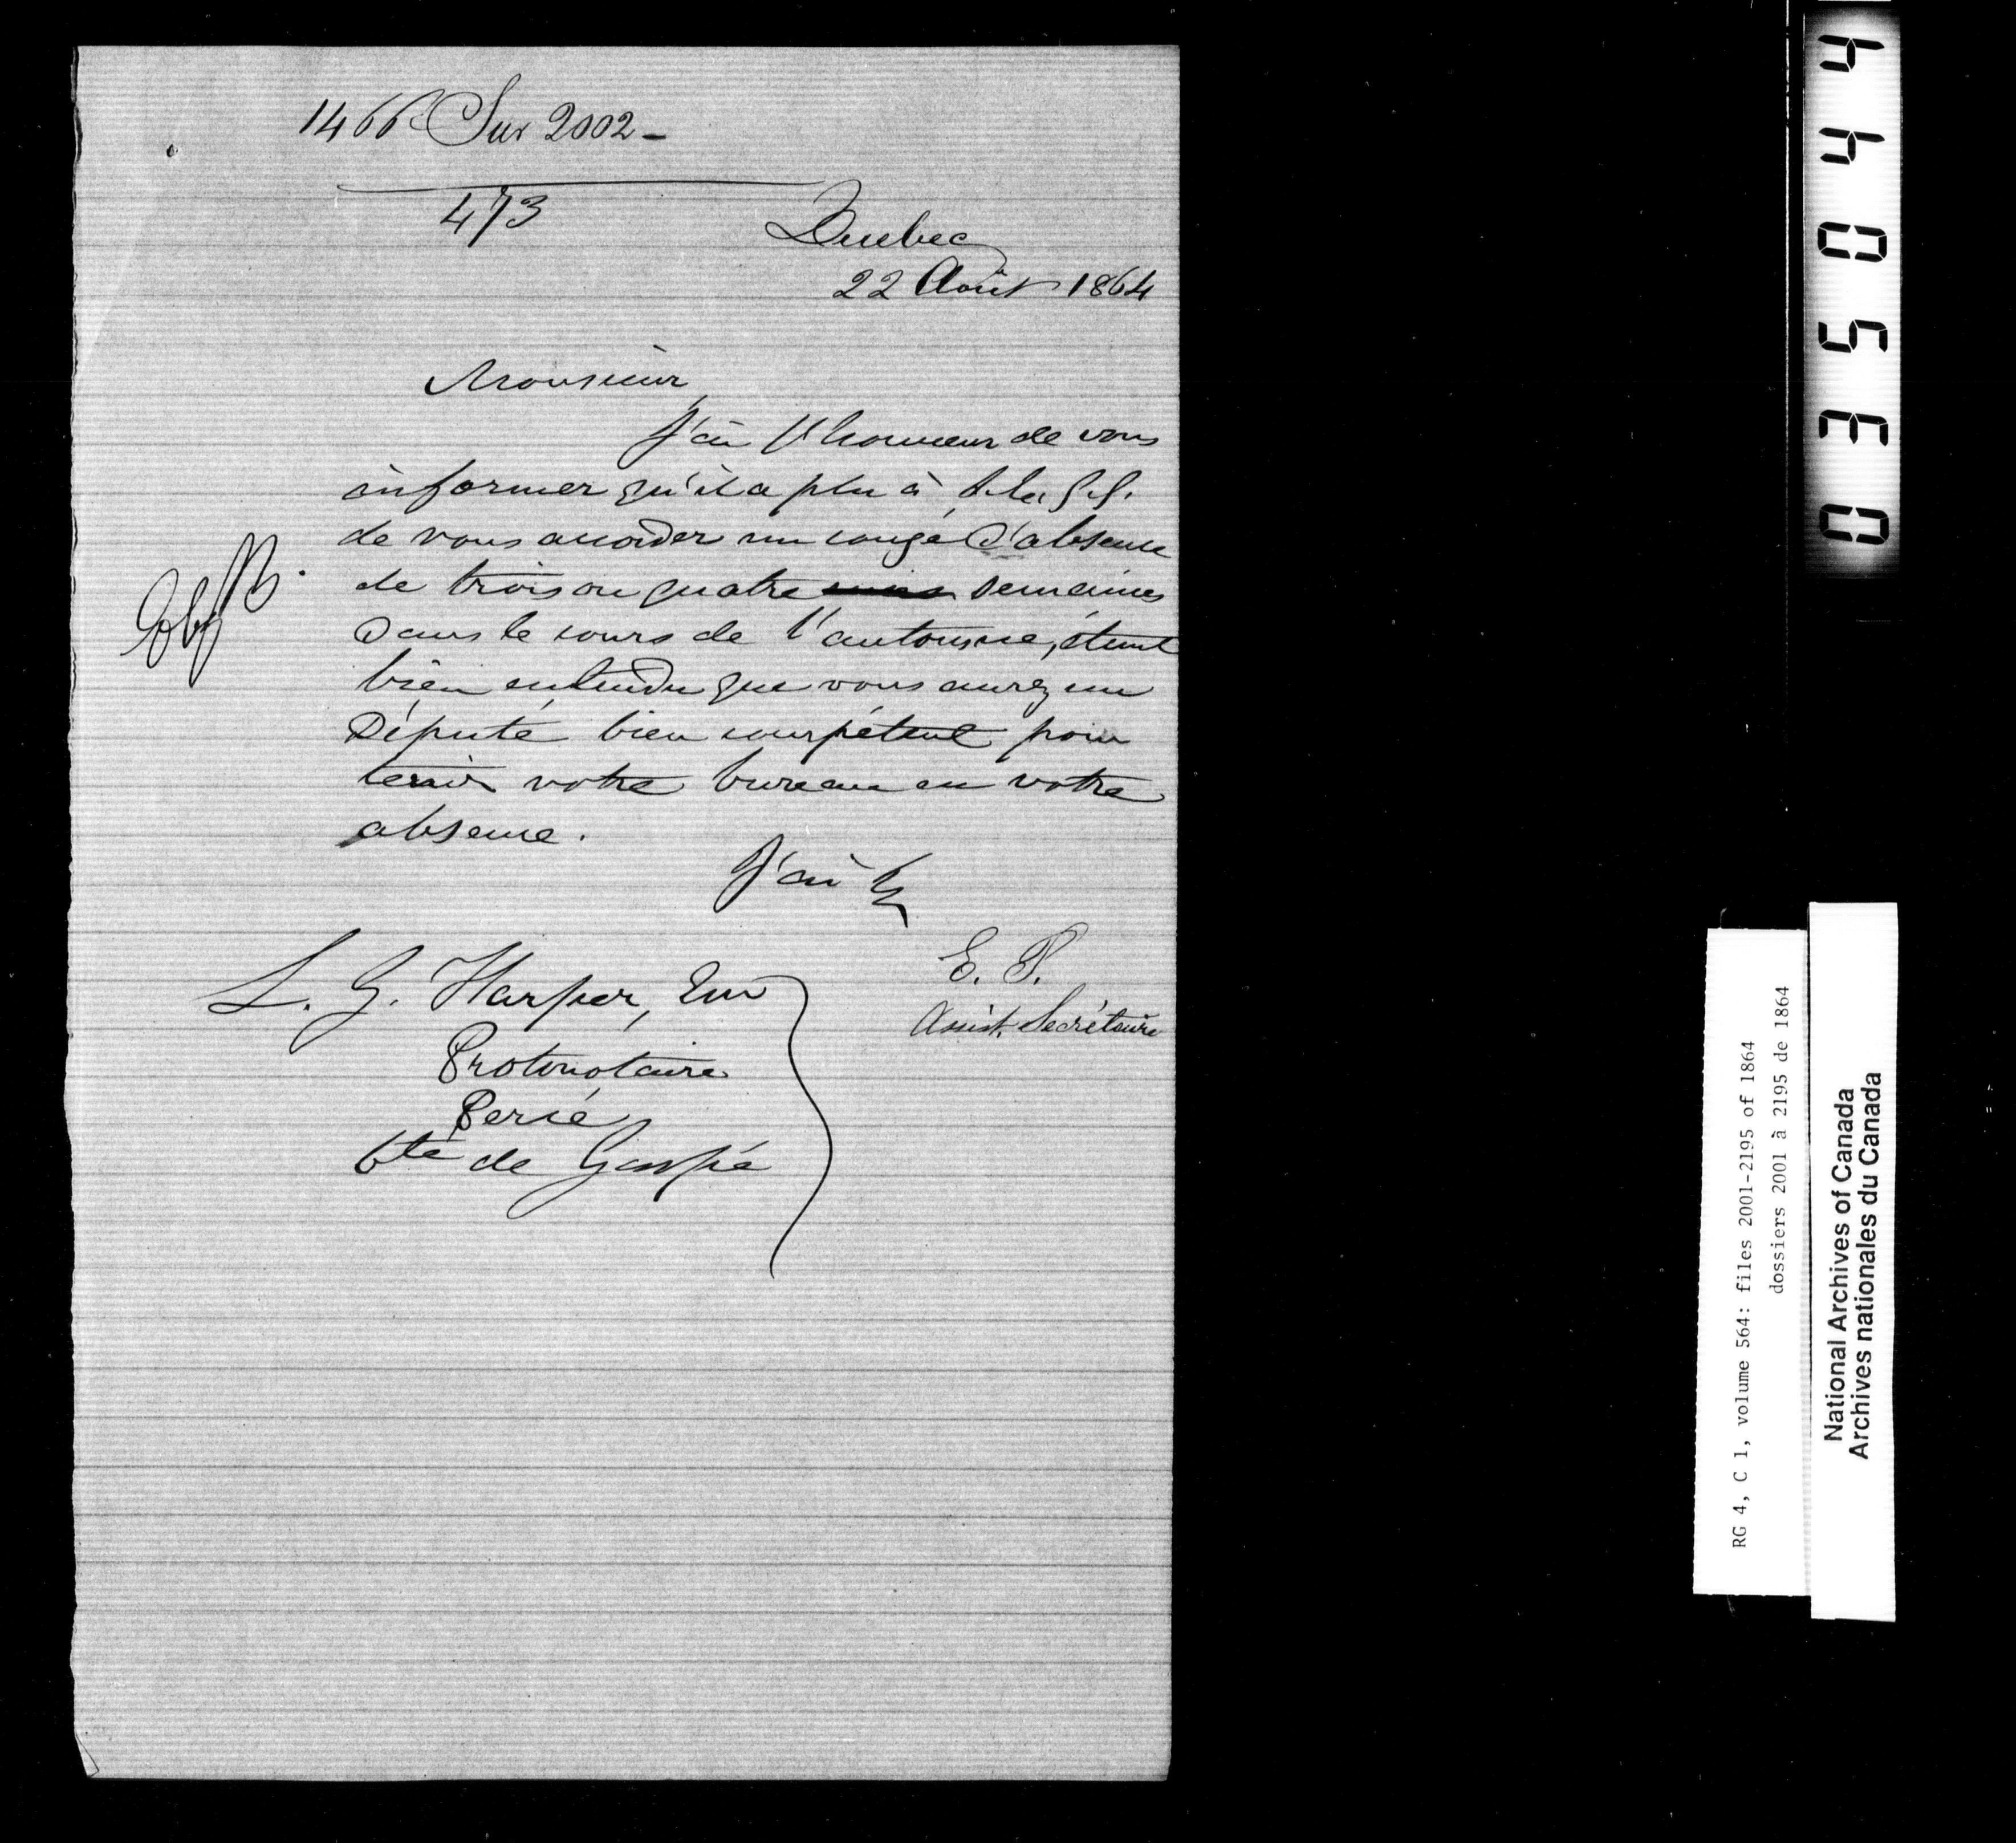 1466 Sur 2002 -
473
Quebec
22 Août 1864
Monsieur,
J'ai l'honneur de vous
informer qu'il a plu à S. Ex. le G. G.
de vous accorder un congé d'absence
de trois ou quatre mois semaines
dans le cours de l'automne, étant
bien entendu que vous aurez un
Député bien compétent pour
tenir votre bureau en votre
absence.
J'ai &c
E. P.
Assist. Secrétaire
L. G. Harper, Eur
Protonotaire
Percé
Cté de Gaspé
035044
RG 4, C 1, volume 564: files 2001-2195 of 1864
dossiers 2001 à 2195 de 1864
National Archives of Canada
Archives nationales du Canada